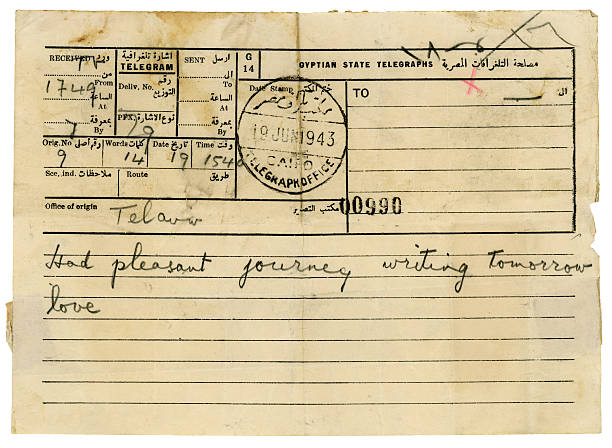 RECEIVED ورد
من
From
1749
الساعة
At
بمعرفة
By
اشارة تلغرافية
TELEGRAM
رقم
Deliv. No. التوزيع
PFX. نوع الاشارة
SENT ارسل
الى
To
الساعة
At
بمعرفة
By
G
14
GYPTIAN STATE TELEGRAPHS مصلحة التلغرافات المصرية
Date Stamp ختم المكتب
مكتب تلغراف مصر
19 JUN 1943
CAIRO
TELEGRAPH OFFICE
TO الى
Orig. No رقم أصلى Words كلمات Date تاريخ Time وقت
9 14 19 154
Sce, ind. ملاحظات Route طريق
Office of origin Telaviv مكتب التصدير 00990
Had pleasant journey writing tomorrow
love